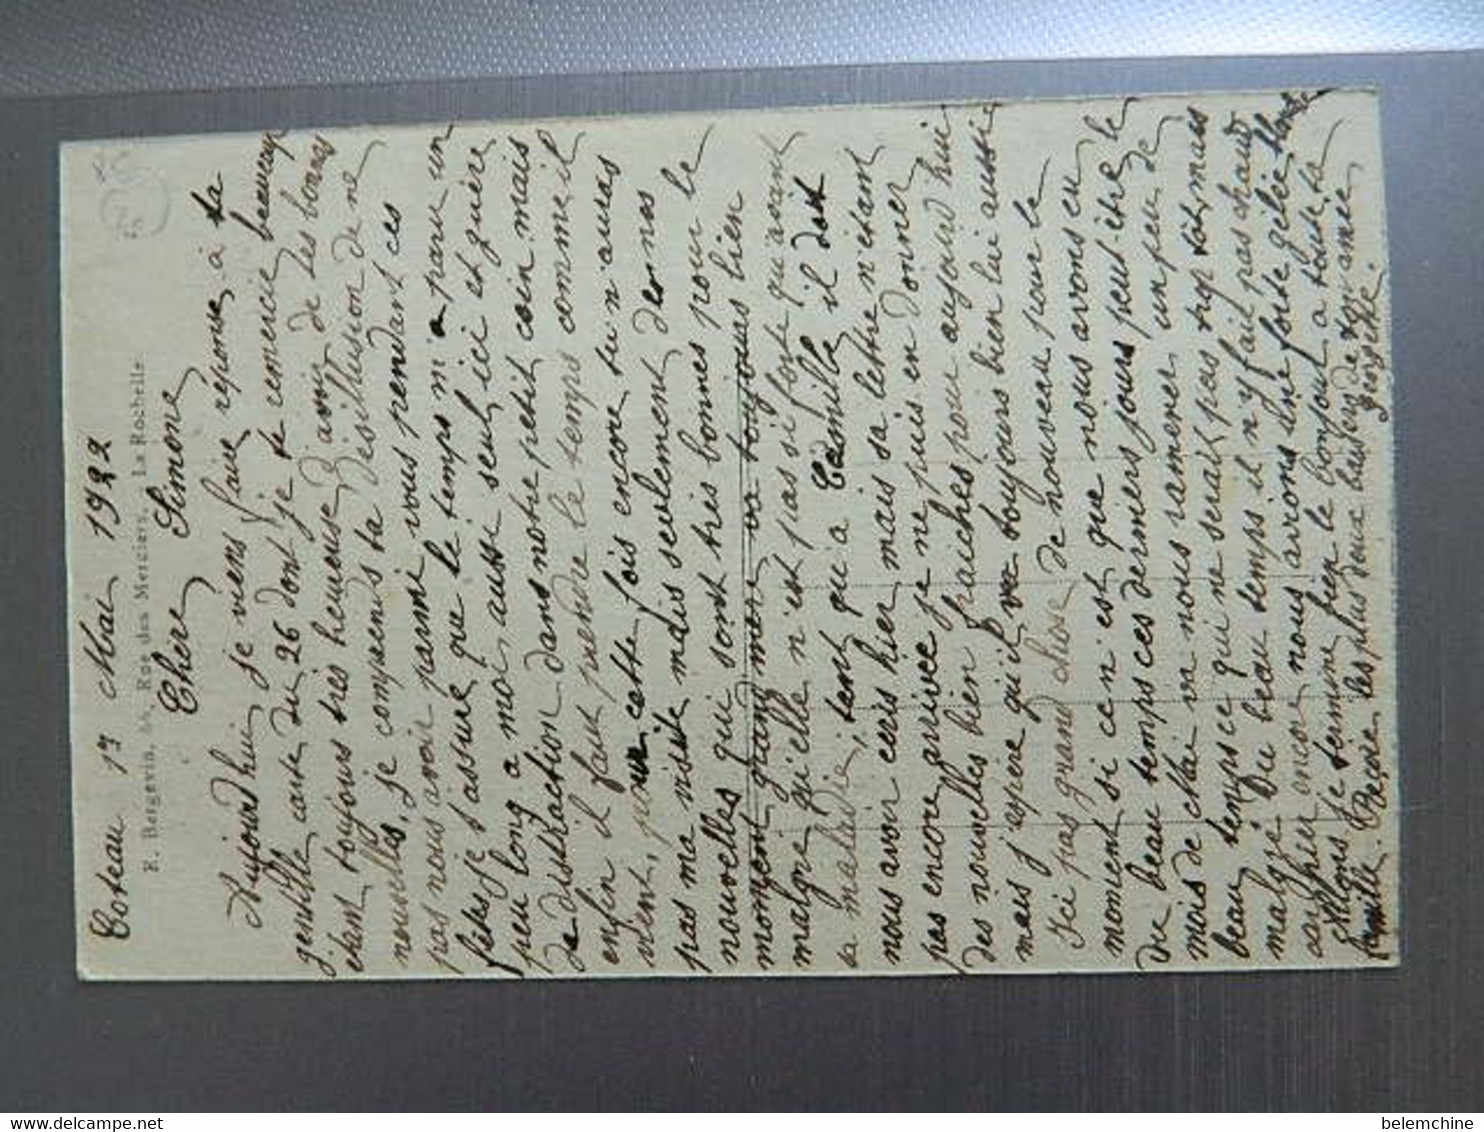 Coteau 17 Mai 1922
E. Bergevin, Rue des Merciers, La Rochelle
Chère Simone
Aujourd'hui je viens faire réponse à ta
gentille carte du 26 dont je te remercie beaucoup
étant toujours très heureuse d'avoir de tes bonnes
nouvelles, je comprends ta désillusion de ne
pas nous avoir parmi vous pendant ces
fêtes je t'assure que le temps m'a paru un
peu long a moi aussi seul, ici et guère
de distraction dans notre petit coin mais
enfin il faut prendre le temps comme il
vient, pour cette fois encore tu n'auras
pas ma visite mais seulement de nos
nouvelles qui sont très bonnes pour le
moment grand mère va toujours bien
malgré qu'elle n'est pas si forte qu'avant
sa maladie, tant qu'a Camille il doit
nous avoir écris hier mais sa lettre n'étant
pas encore arrivée je ne puis en donner
des nouvelles bien fraiches pour aujourd'hui
mais j'espère qu'il va toujours bien lui aussi
Ici pas grand chose de nouveau pour le
moment si ce n'est que nous avons eu
du beau temps ces derniers jours peut être le
mois de Mai va nous ramener un peu de
beau temps ce qui ne serait pas trop tôt, mais
malgré du beau temps il n'y fait pas chaud
car hier encore nous avions une forte gelée blanche
Allons je termine bien le bonjour a toute ta
famille. Reçois les plus doux baisers de ton amie
Georgette.
belemchine